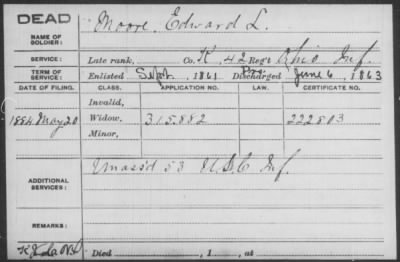 DEAD
NAME OF SOLDIER: Moore, Edward L.
SERVICE: Late rank, Co. K, 42 Reg't Ohio Inf.
TERM OF SERVICE: Enlisted Sept. 1861 Discharged June 6, 1863
DATE OF FILING. CLASS. APPLICATION NO. LAW. CERTIFICATE NO.
Invalid,
1884 May 20 Widow, 315.882 222803
Minor,
ADDITIONAL SERVICES: Unass'd 53 U.S.C. Inf.
REMARKS:
Died , 1 , at